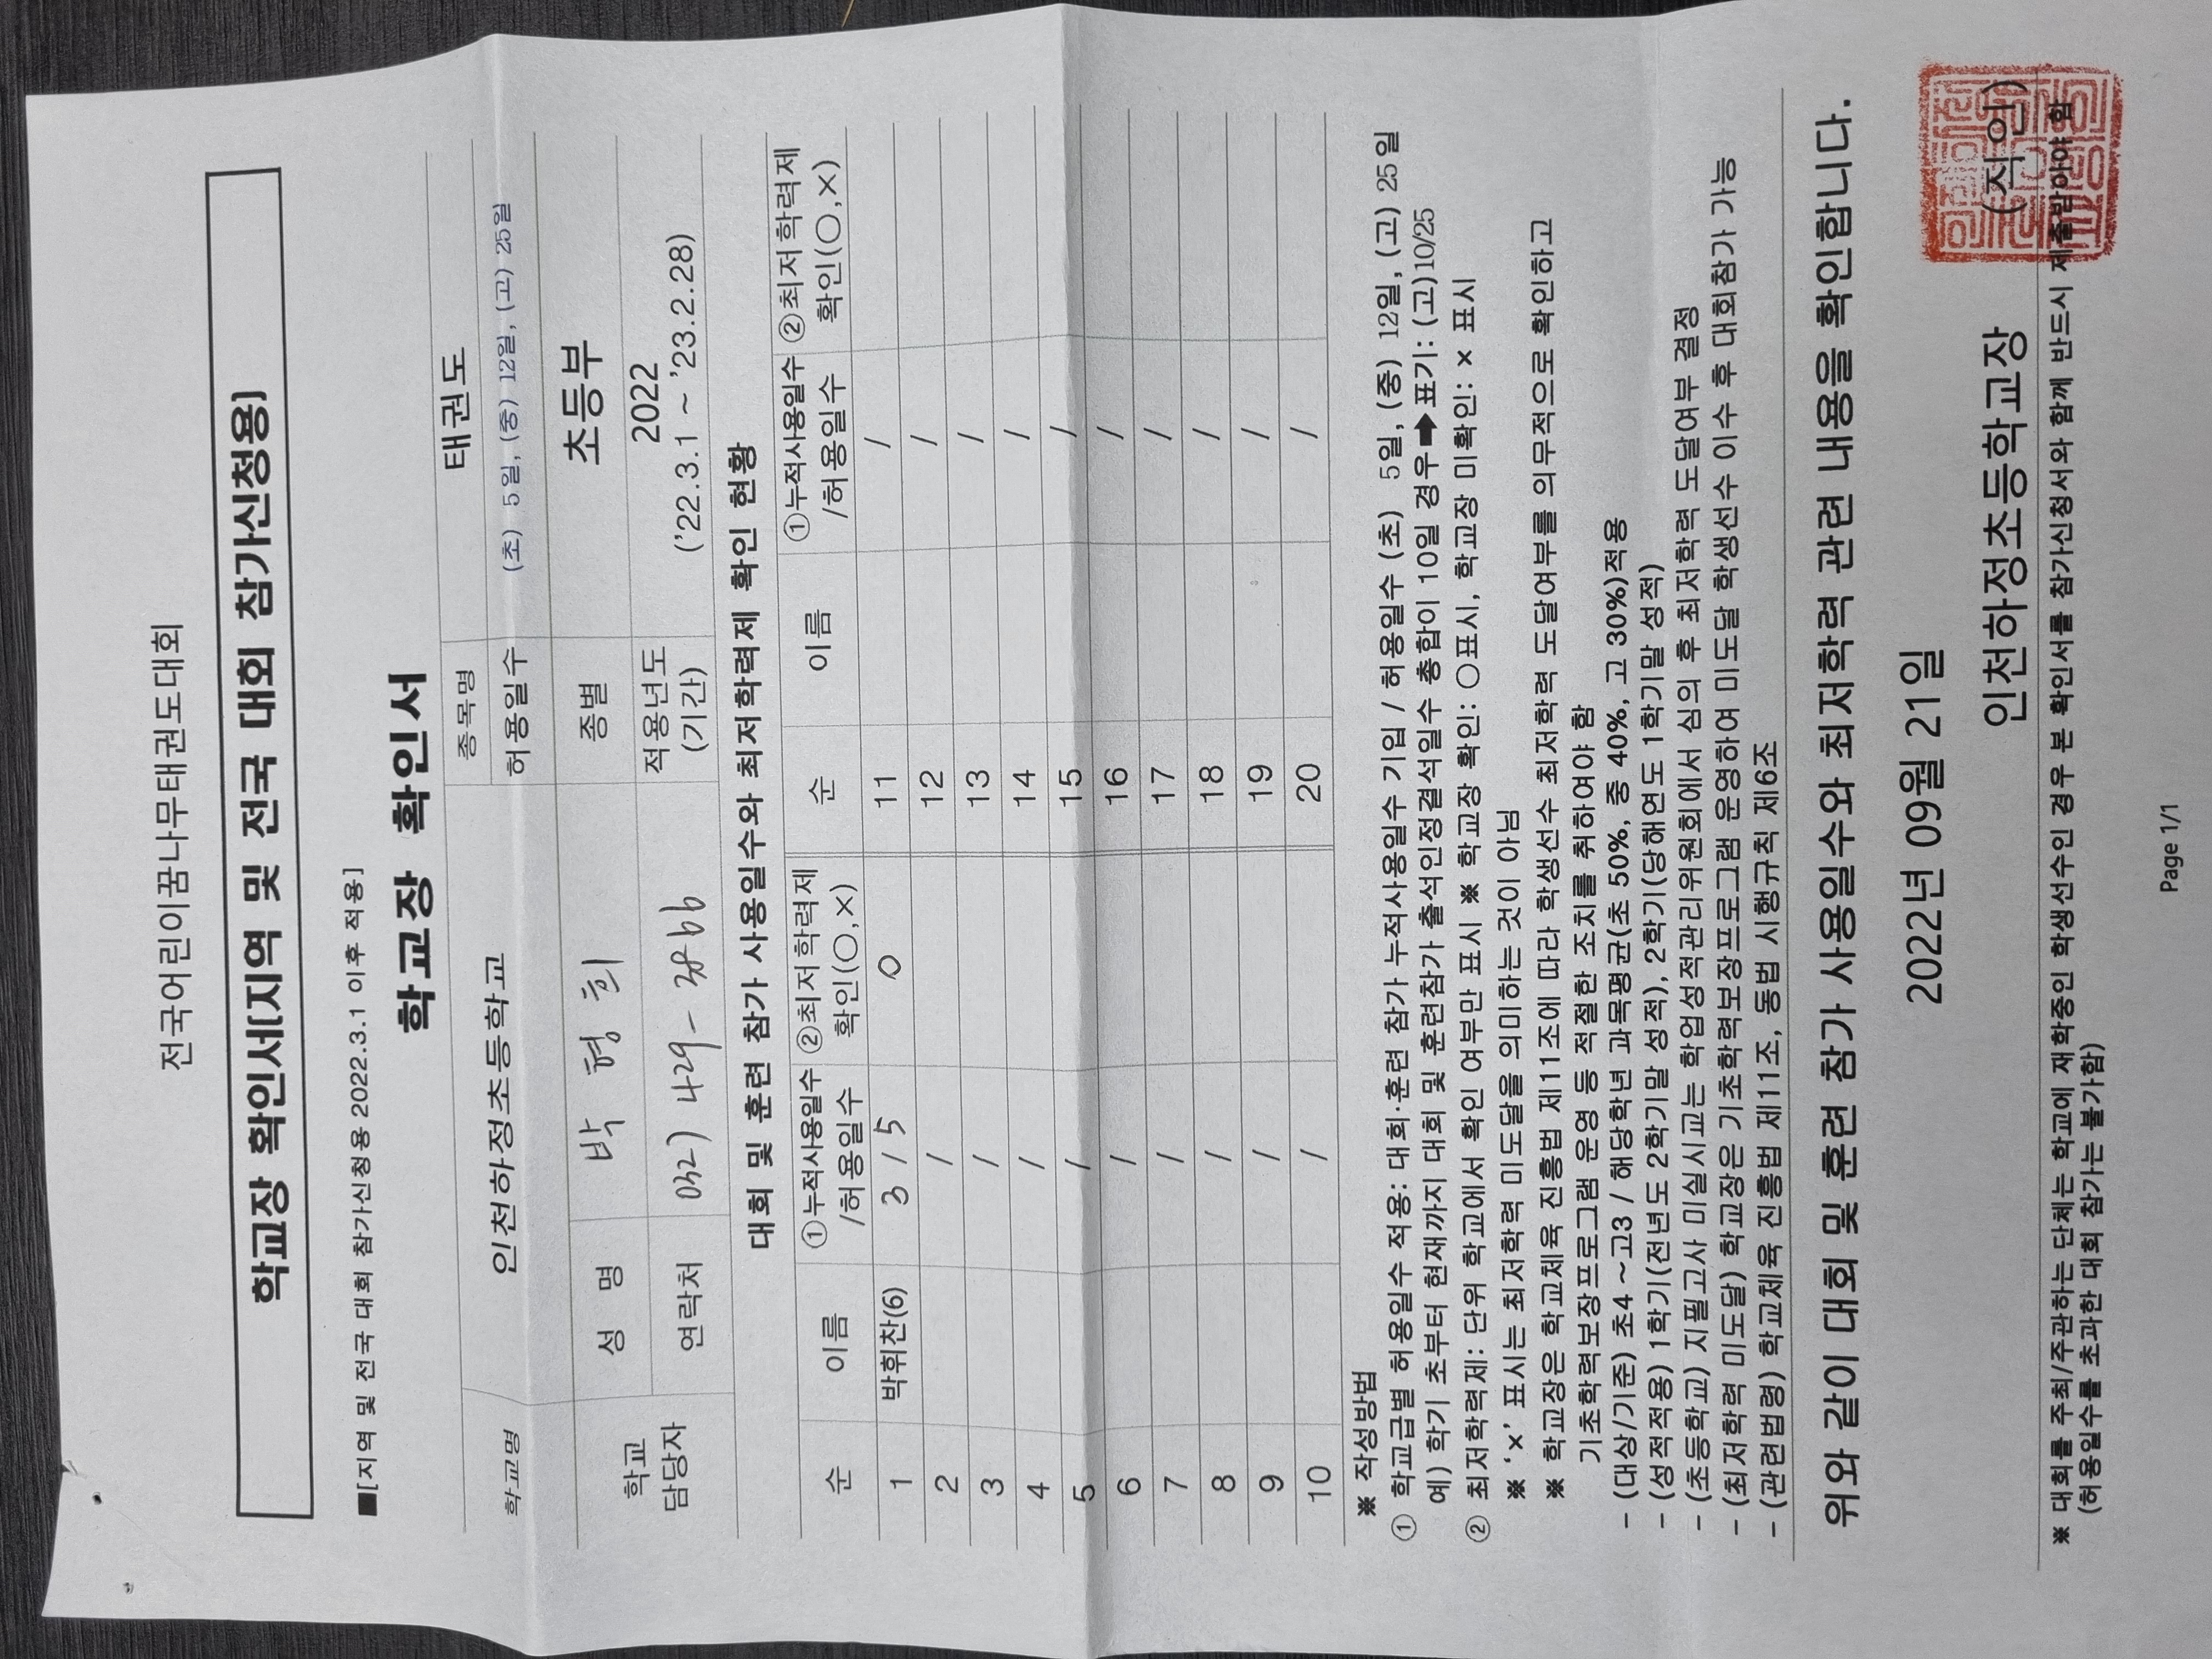 전국어린이꿈나무태권도대회
학교장 확인서[지역 및 전국 대회 참가신청용]
■[지역 및 전국 대회 참가신청용 2022.3.1 이후 적용]
학교장 확인서
학교명 인천하정초등학교 종목명 태권도
허용일수 (초) 5일, (중) 12일, (고) 25일
학교 담당자 성 명 박 형 희 종별 초등부
연락처 032) 429- 적용년도 (기간) 2022 ('22.3.1 ~ '23.2.28)
대회 및 훈련 참가 사용일수와 최저학력제 확인 현황
순 이름 ①누적사용일수 /허용일수 ②최저학력제 확인(○,×) 순 이름 ①누적사용일수 /허용일수 ②최저학력제 확인(○,×)
1 박휘찬(6) 3 / 5 ○ 11 /
2 / 12 /
3 / 13 /
4 / 14 /
5 / 15 /
6 / 16 /
7 / 17 /
8 / 18 /
9 / 19 /
10 / 20 /
※ 작성방법
① 학교급별 허용일수 적용: 대회·훈련 참가 누적사용일수 기입 / 허용일수 (초) 5일, (중) 12일, (고) 25일
예) 학기 초부터 현재까지 대회 및 훈련참가 출석인정결석일수 총합이 10일 경우➡표기: (고)10/25
② 최저학력제: 단위 학교에서 확인 여부만 표시 ※ 학교장 확인: ○표시, 학교장 미확인: × 표시
※ ‘×’ 표시는 최저학력 미도달을 의미하는 것이 아님
※ 학교장은 학교체육 진흥법 제11조에 따라 학생선수 최저학력 도달여부를 의무적으로 확인하고
기초학력보장프로그램 운영 등 적절한 조치를 취하여야 함
- (대상/기준) 초4 ~고3 / 해당학년 과목평균(초 50%, 중 40%, 고 30%)적용
- (성적적용) 1학기(전년도 2학기말 성적), 2학기(당해연도 1학기말 성적)
- (초등학교) 지필고사 미실시교는 학업성적관리위원회에서 심의 후 최저학력 도달여부 결정
- (최저학력 미도달) 학교장은 기초학력보장프로그램 운영하여 미도달 학생선수 이수 후 대회참가 가능
- (관련법령) 학교체육 진흥법 제11조, 동법 시행규칙 제6조
위와 같이 대회 및 훈련 참가 사용일수와 최저학력 관련 내용을 확인합니다.
2022년 09월 21일
인천하정초등학교장 (직인)
※ 대회를 주최/주관하는 단체는 학교에 재학중인 학생선수인 경우 본 확인서를 참가신청서와 함께 반드시 제출받아야 함
(허용일수를 초과한 대회 참가는 불가함)
Page 1/1